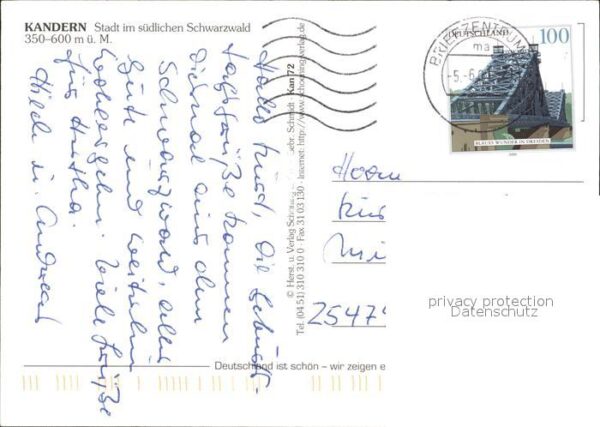 KANDERN Stadt im südlichen Schwarzwald
350–600 m ü. M.
Hallo Kurt, die Geburts-
tagsgrüße kommen
diesmal aus dem
Schwarzwald, alles
Gute und weiterhin
Wohlergehen. Viele Grüße
für Martha.
Hilde u. Andreas
© Herst. u. Verlag Schöning & Gebr. Schmidt · Kan 72
Tel. (04 51) 310 310 0 · Fax 31 03 130 · Internet: http://www.schoening-verlag.de
DEUTSCHLAND 100
BLAUES WUNDER IN DRESDEN
2000
BRIEFZENTRUM
ma
-5.-6.
Herrn
Kur
25474
privacy protection
Datenschutz
Deutschland ist schön – wir zeigen e